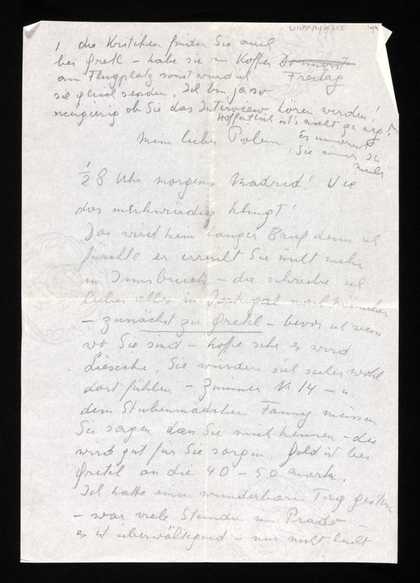 die Kritiken finden Sie auch
bei Gretl – habe sie im Koffer
am Flugplatz sonst würde ich Freitag
sie gleich senden. Ich bin ja so
neugierig ob Sie das Interview hören werden!
Hoffentlich ist's nicht zu arg!
Mein lieber
½8 Uhr morgens Madrid! Wie
das merkwürdig klingt!
Das wird kein langer Brief denn ich
fürchte er erreicht Sie nicht mehr
in Innsbruck – die schreibe ich
lieber alle
– zunächst zu Gretl – bevor ich weiss
wo Sie sind – hoffe sehr es wird
Sie würden sich sicher wohl
dort fühlen – Zimmer N. 14 –
dem Stubenmädchen Fanny müssen
Sie sagen dass Sie mich kennen – die
wird gut für Sie sorgen. Geld ist bei
Gretl an die 40 – 50 Mark.
Ich hatte einen wunderbaren Tag gestern
– war viele Stunden im Prado –
es ist überwältigend – nur nicht